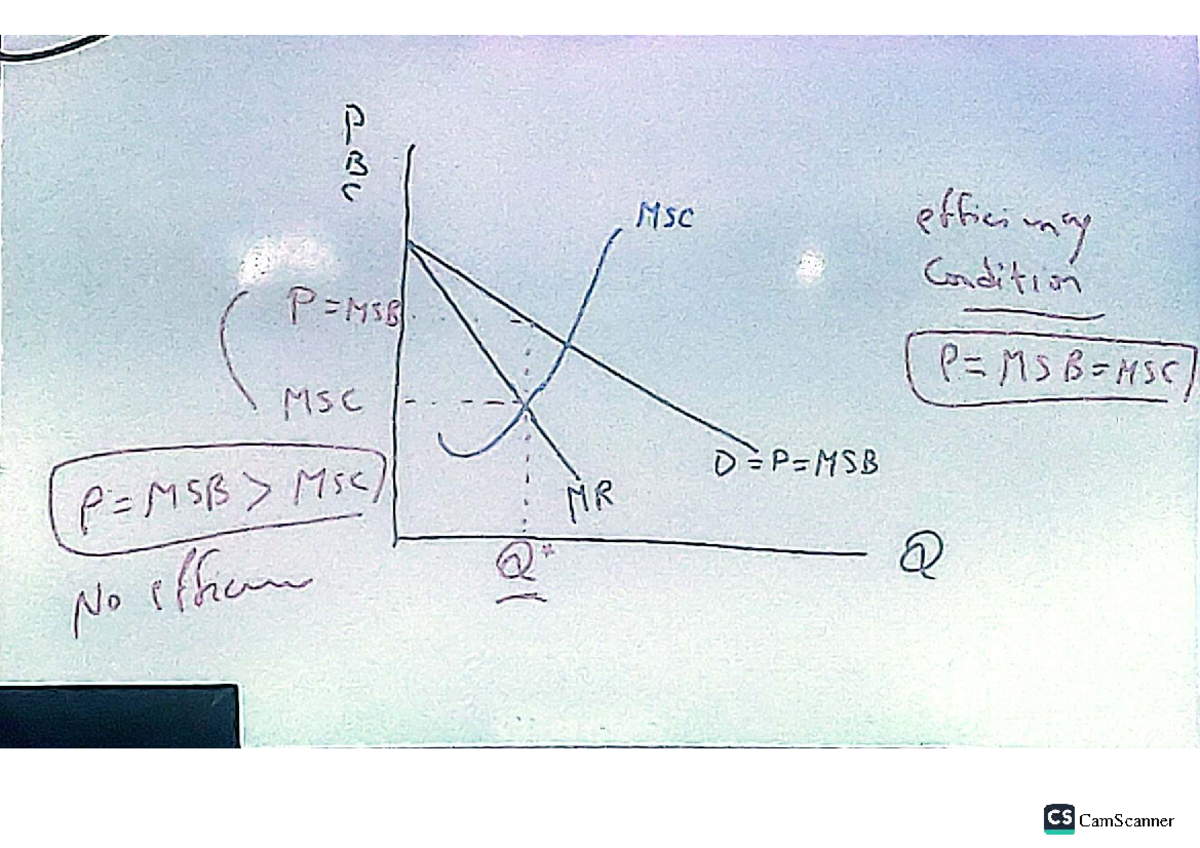 P
B
C
MSC
efficiency
Condition
P = MSB
P = MSB = MSC
MSC
D = P = MSB
P = MSB > MSC
MR
Q*
Q
No
CS CamScanner